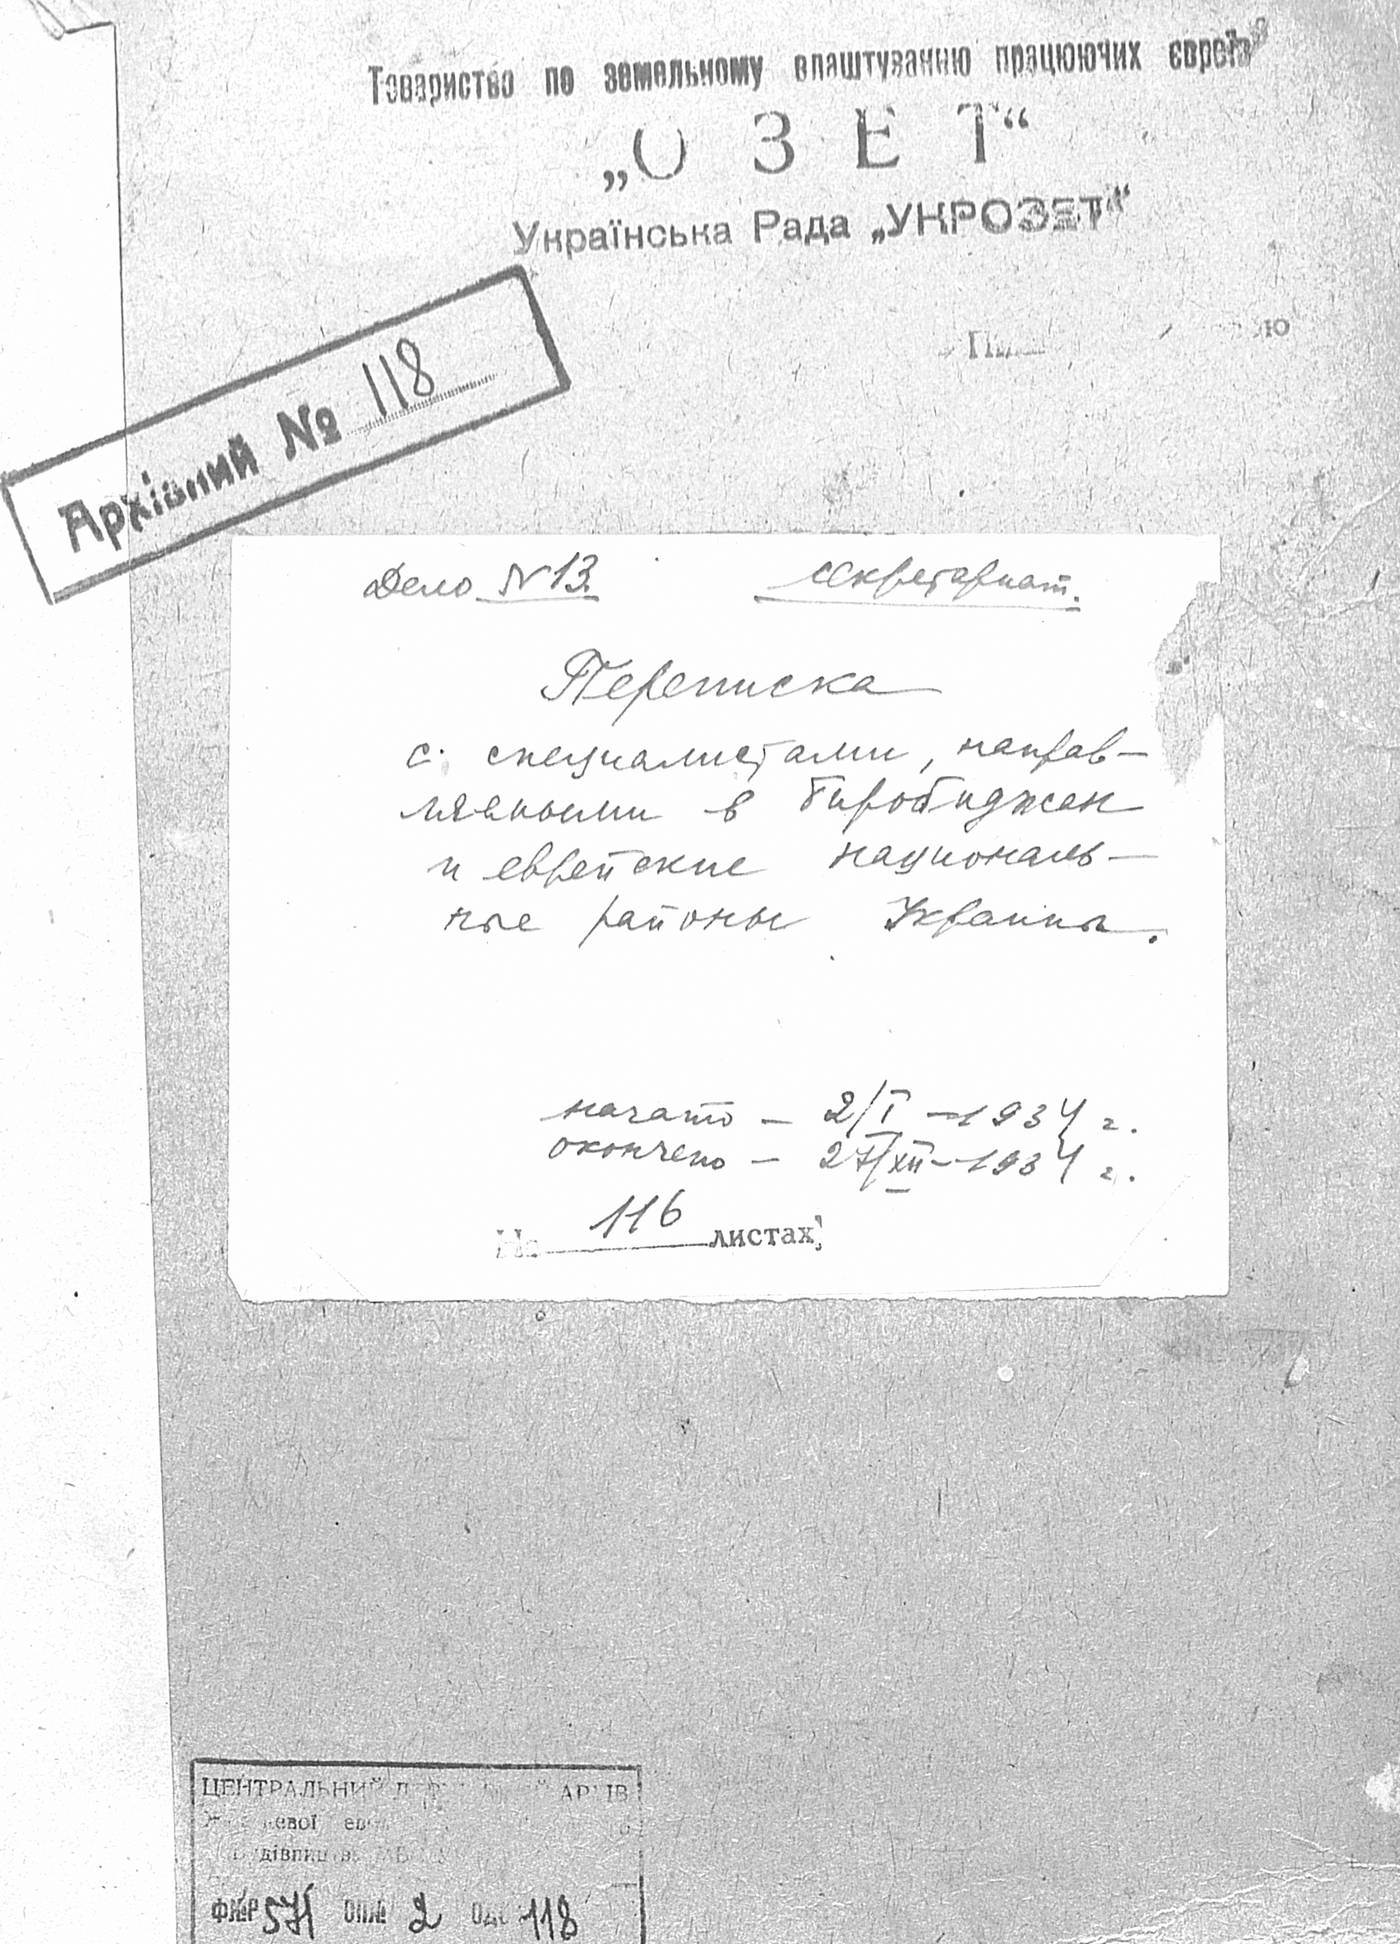 Товариство по земельному влаштуванню працюючих євреїв
„ОЗЕТ“
Українська Рада „УКРОЗЕТ“
Архівний № 118
Дело N 13. Секретариат.
Переписка
с специалистами, направ-
ляемыми в Биробиджан
и еврейские националь-
ные районы Украины.
начато – 2/I – 1934 г.
окончено – 27/XII – 1934 г.
На 116 листах
ЦЕНТРАЛЬНИЙ АРХІВ
ФР 571 ОП№ 2 Од 118